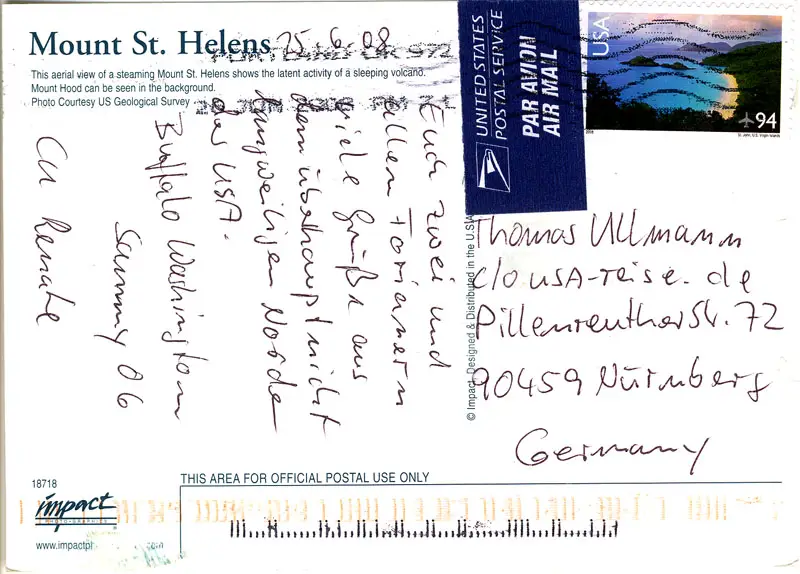 Mount St. Helens
25.6.08
This aerial view of a steaming Mount St. Helens shows the latent activity of a sleeping volcano.
Mount Hood can be seen in the background.
Photo Courtesy US Geological Survey
UNITED STATES
POSTAL SERVICE
PAR AVION
AIR MAIL
USA
94
2008
St. John, U.S. Virgin Islands
PORTLAND OR 972
Euch zwei und
allen Forianern
viele Grüße aus
dem überhaupt nicht
langweiligen Norden
des USA.
Buffalo Washington
Sammy 06
CU Renate
© Impact Designed & Distributed in the U.S.
Thomas Ullmann
c/o USA-reise.de
Pillenreuther Str. 72
90459 Nürnberg
Germany
18718
impact
PHOTO-GRAPHICS
www.impactp
THIS AREA FOR OFFICIAL POSTAL USE ONLY